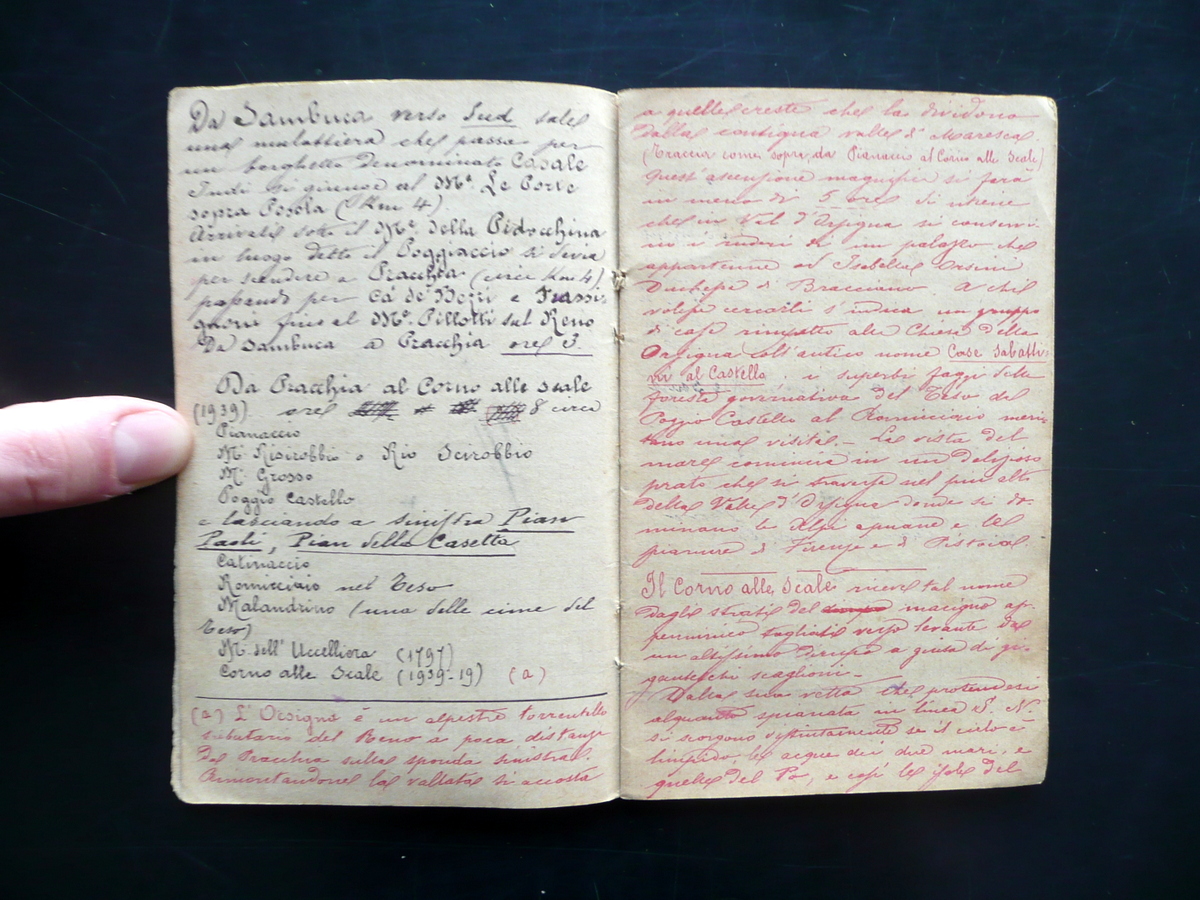 Da Sambuca verso Sud sale
una mulattiera che passa per
un borghetto denominato Casale
Indi si giunge al Mte. Le Porte
sopra Posola (Km 4)
Arrivati sotto il Mte. della Pidocchina
in luogo detto il Poggiaccio si devia
per scendere a Pracchia (circa Km 4),
passando per Ca' de' Bezzi e Frassi-
gnoni fino al Mo. Pillotti sul Reno
Da Sambuca a Pracchia ore 3.
Da Pracchia al Corno alle Scale
(1939) ore 8 circa
Pianaccio
Mte Risirobbio o Rio Scirobbio
Mte Grosso
Poggio Castello
e lasciando a sinistra Pian
Paoli, Pian della Casetta
Catinaccio
Romicciaio nel Teso
Malandrino (una delle cime del
Teso)
M. dell' Uccelliera (1797)
Corno alle Scale (1939-19) (a)
(a) L'Orsigna è un alpestre torrentello
tributario del Reno a poca distanza
da Pracchia sulla sponda sinistra.
Rimontandone la vallata si accosta
a quelle creste che la dividono
dalla contigua valle d' Maresca
(Traccia come sopra da Pianaccio al Corno alle Scale)
Quest'ascensione magnifica si farà
in meno di 5 ore. Si ritiene
che in Val d'Orsigna si conservi-
no i ruderi di un palazzo che
appartenne ad Isabella Orsini
Duchessa di Bracciano. A chi
volesse cercarli s'indica un gruppo
di case rimpetto alla Chiesa della
Orsigna coll'antico nome Case Sabatti-
ni al Castello. i superbi faggi della
foresta governativa del Teso del
Poggio Castello al Romicciaio meri-
tano una visita. - La vista del
mare comincia in un delizioso
prato che si traversa nel più alto
della Valle d'Orsigna donde si do-
minano le Alpi apuane e le
pianure di Firenze e di Pistoia.
Il Corno alle Scale riceve tal nome
dagli strati del macigno ap-
penninico tagliati verso levante da
un altissimo dirupo a guisa di gi-
ganteschi scaglioni. -
Dalla sua vetta che protendesi
alquanto spianata in linea S. N.
si scorgono distintamente se il cielo è
limpido, le acque dei due mari, e
quelle del Po, e così le isole del